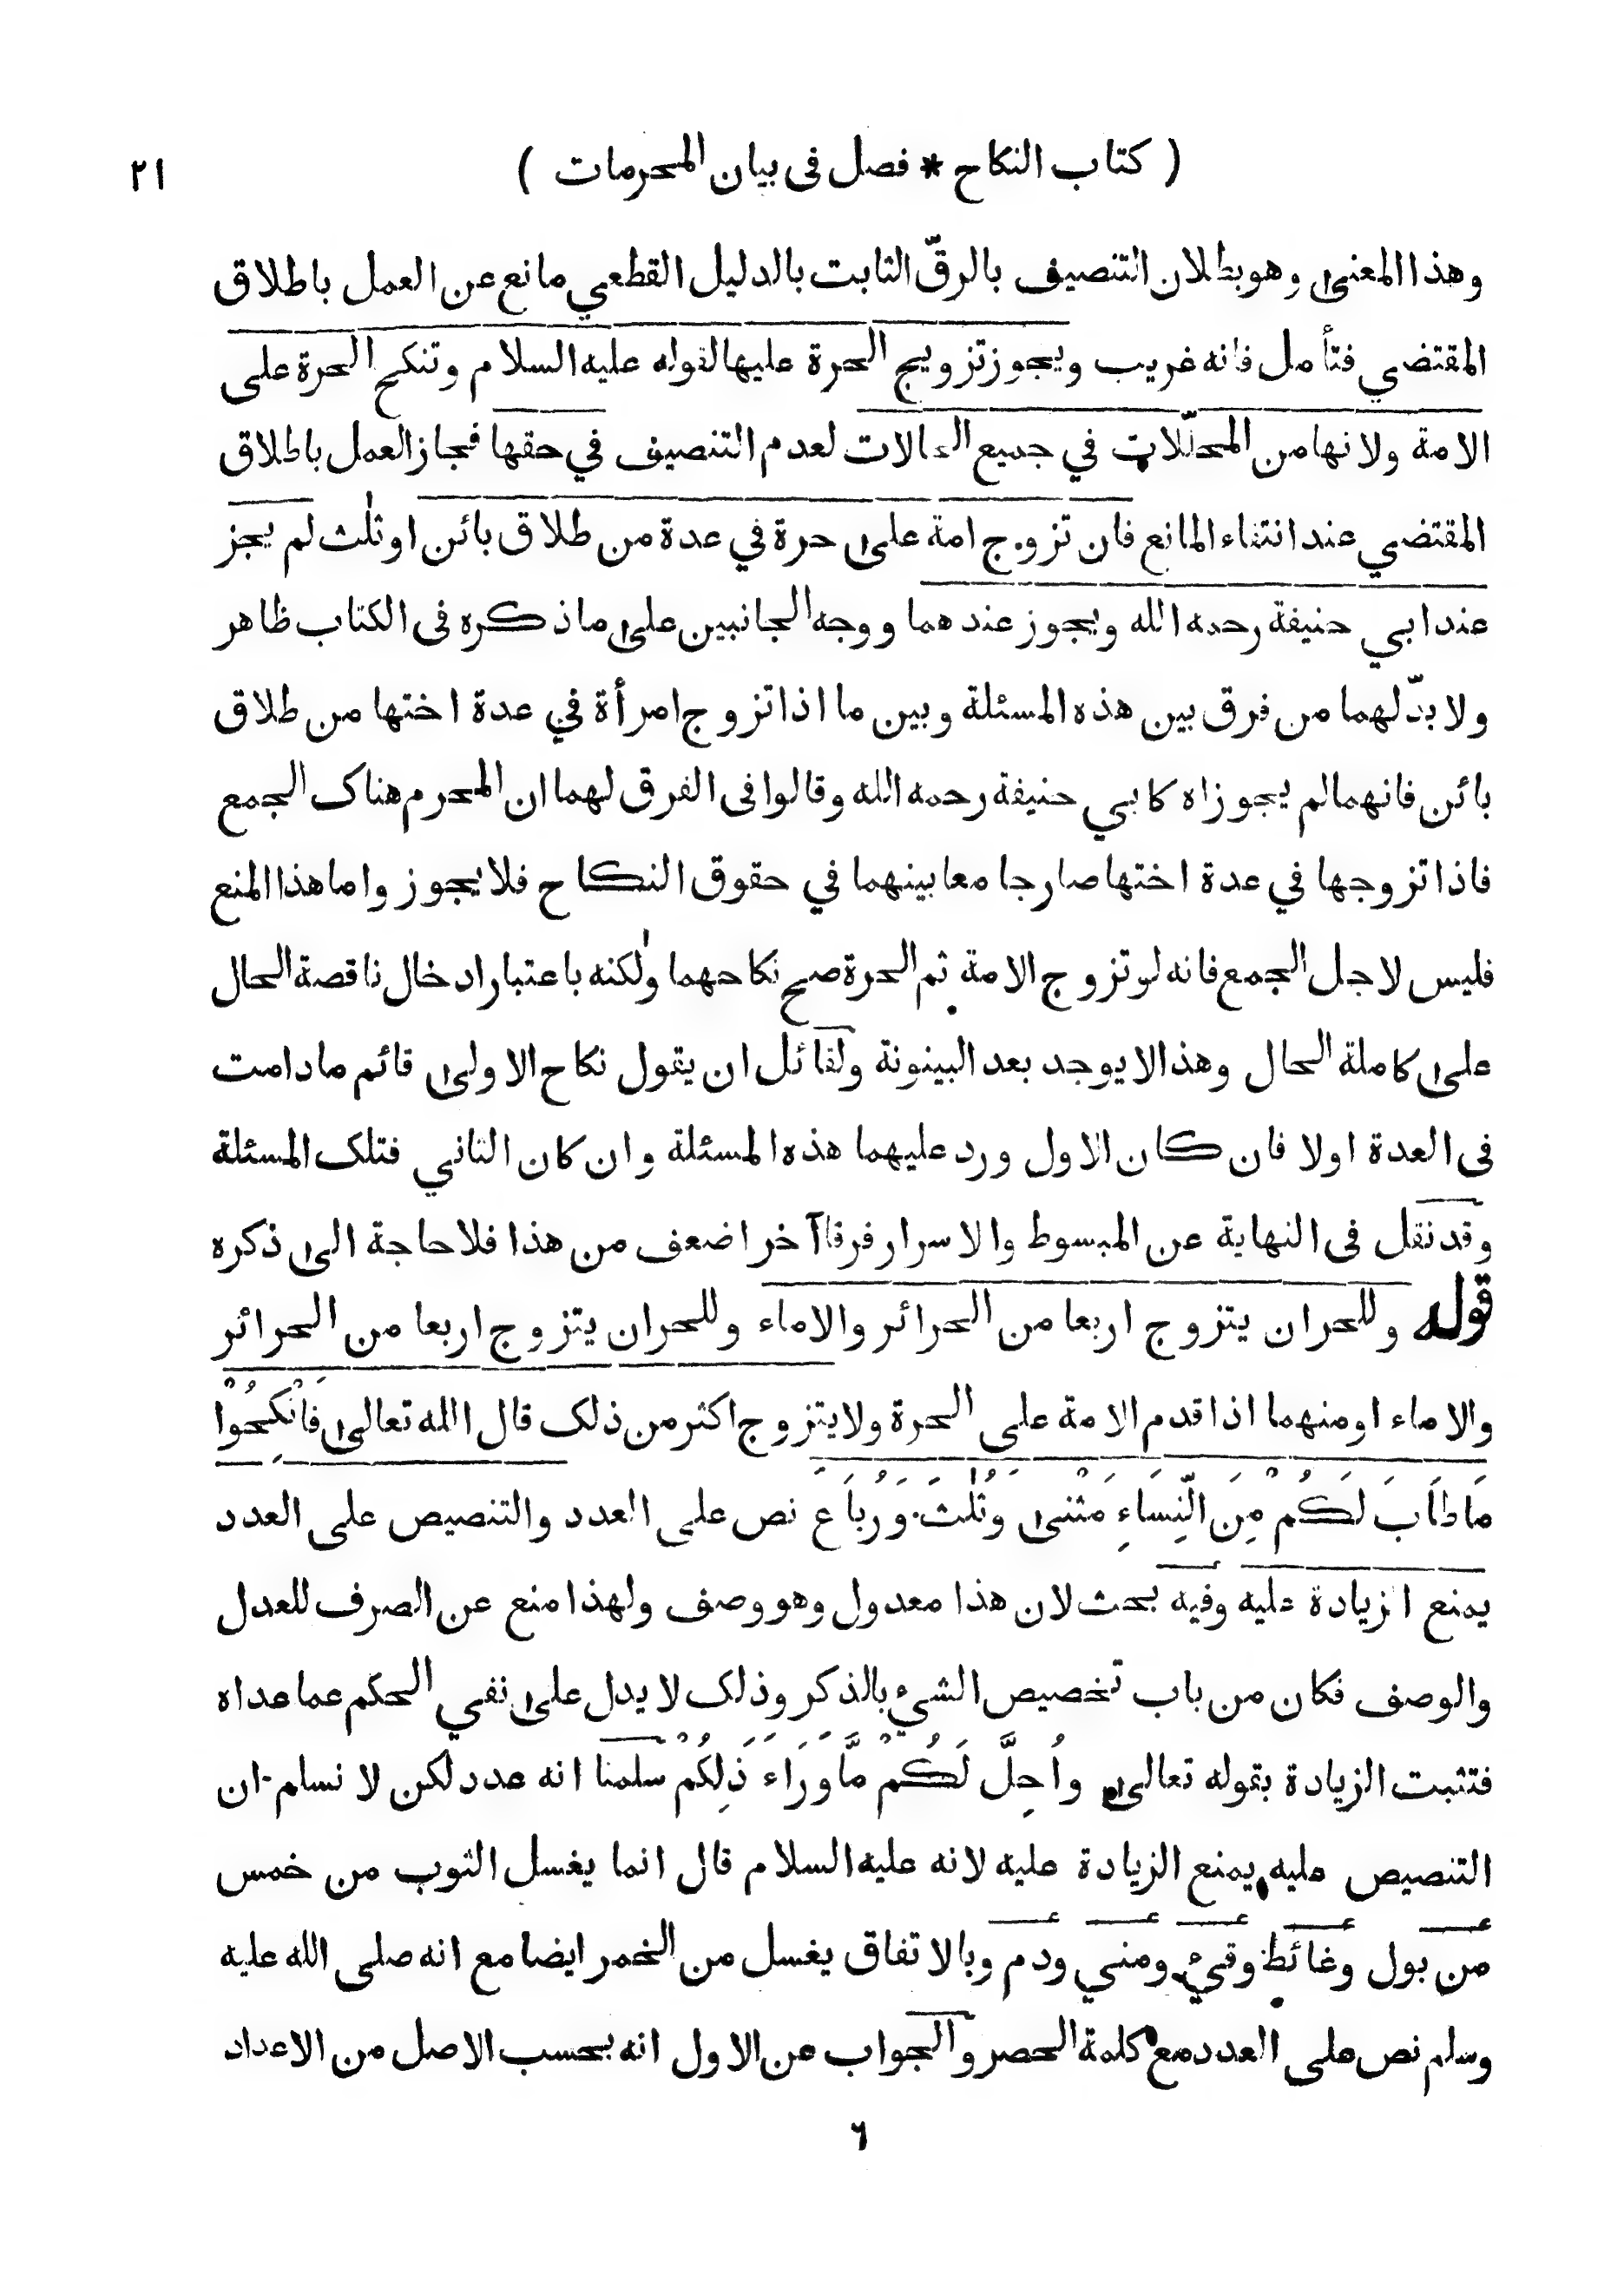 ( كتاب النكاح * فصل فى بيان المحرمات )
٢١
وهذا المعنى وهو بطلان التنصيف بالرقّ الثابت بالدليل القطعي مانع عن العمل باطلاق
المقتضي فتأمل فانه غريب ويجوز تزويج الحرة عليها لقوله عليه السلام وتنكح الحرة على
الامة ولانها من المحلّلات في جميع الحالات لعدم التنصيف في حقها فجاز العمل باطلاق
المقتضي عند انتفاء المانع فان تزوج امة على حرة في عدة من طلاق بائن او ثلٰث لم يجز
عند ابي حنيفة رحمه الله ويجوز عندهما ووجه الجانبين على ما ذكره فى الكتاب ظاهر
ولا بدّ لهما من فرق بين هذه المسئلة وبين ما اذا تزوج امرأة في عدة اختها من طلاق
بائن فانهما لم يجوزاه كابي حنيفة رحمه الله وقالوا فى الفرق لهما ان المحرم هناك الجمع
فاذا تزوجها في عدة اختها صار جامعا بينهما في حقوق النكاح فلا يجوز واما هذا المنع
فليس لاجل الجمع فانه لو تزوج الامة ثم الحرة صح نكاحهما ولٰكنه باعتبار ادخال ناقصة الحال
على كاملة الحال وهذا لا يوجد بعد البينونة ولقائل ان يقول نكاح الاولى قائم ما دامت
فى العدة اولا فان كان الاول ورد عليهما هذه المسئلة وان كان الثاني فتلك المسئلة
وقد نقل فى النهاية عن المبسوط والاسرار فرقا آخر اضعف من هذا فلا حاجة الى ذكره
قوله وللحر ان يتزوج اربعا من الحرائر والاماء وللحر ان يتزوج اربعا من الحرائر
والاماء او منهما اذا قدم الامة على الحرة ولا يتزوج اكثر من ذلك قال الله تعالى فَانْكِحُوْا
مَا طَابَ لَكُمْ مِنَ النِّسَاءِ مَثْنىٰ وَثُلٰثَ وَرُبَاعَ نص على العدد والتنصيص على العدد
يمنع الزيادة عليه وفيه بحث لان هذا معدول وهو وصف ولهذا منع عن الصرف للعدل
والوصف فكان من باب تخصيص الشيء بالذكر وذلك لا يدل على نفي الحكم عما عداه
فتثبت الزيادة بقوله تعالى وأُحِلَّ لَكُمْ مَّا وَرَاءَ ذَلِكُمْ سلمنا انه عدد لكن لا نسلم ان
التنصيص عليه يمنع الزيادة عليه لانه عليه السلام قال انما يغسل الثوب من خمس
من بول وغائط وقيء ومني ودم وبالاتفاق يغسل من الخمر ايضا مع انه صلى الله عليه
وسلم نص على العدد مع كلمة الحصر والجواب عن الاول انه بحسب الاصل من الاعداد
٦